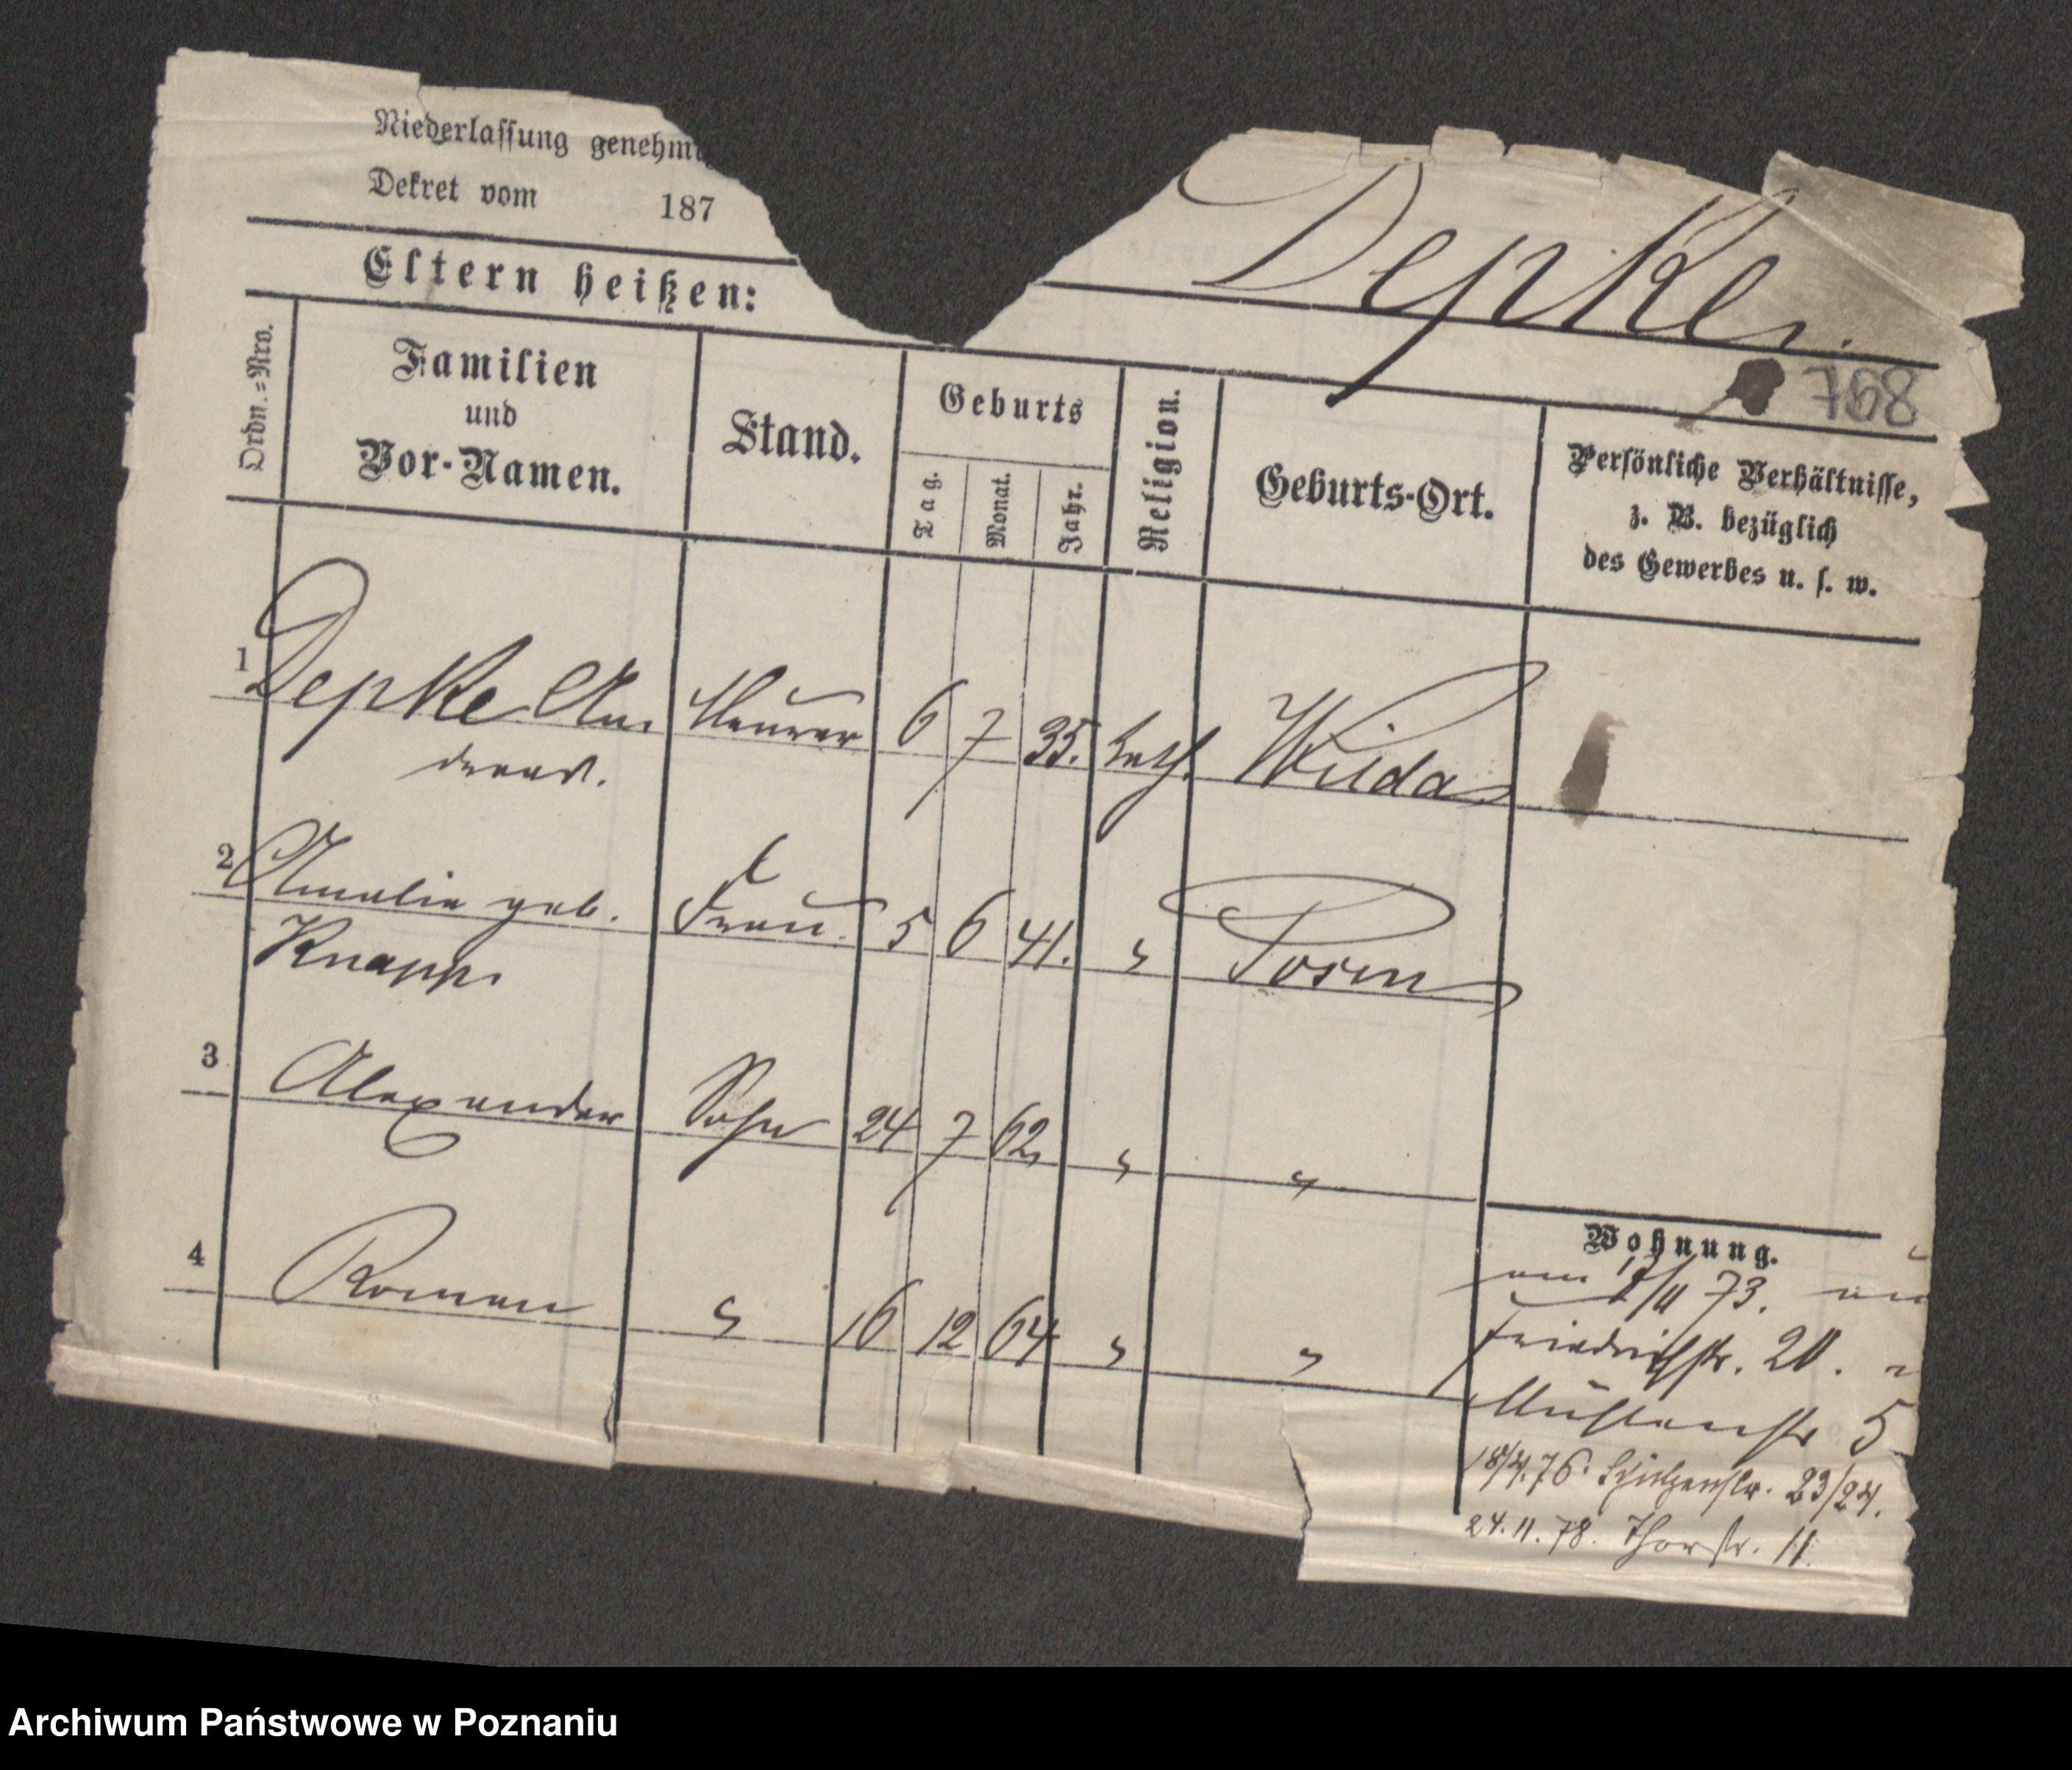 Niederlassung genehmi
Dekret vom 187
Depke.
Eltern heißen:
768
Ordn.=Nro.
Familien
und
Vor-Namen.
Stand.
Geburts
Tag.
Monat.
Jahr.
Religion.
Geburts-Ort.
Persönliche Verhältnisse,
z. B. bezüglich
des Gewerbes u. s. w.
1 Depke An Maurer 6 7 35. kath. Wilda
dreas.
2 Amalie geb. Frau. 5 6 41. " Posen
Knapp.
3 Alexander Sohn 24 7 62 " "
4 Roman " 16 12 64 " "
Wohnung.
am /11 73.
Friedrichstr. 20.
Mühlenstr 5
18/4.76. Schützenstr. 23/24.
24.11.78. Thorstr. 11.
Archiwum Państwowe w Poznaniu